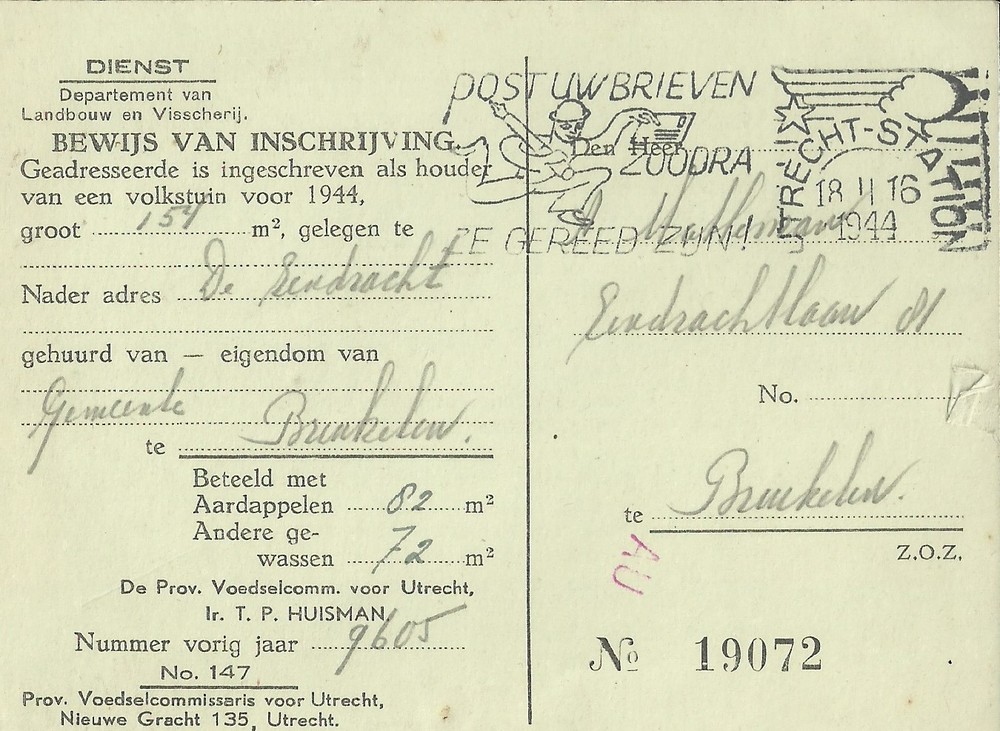 DIENST
Departement van
Landbouw en Visscherij.
BEWIJS VAN INSCHRIJVING.
Geadresseerde is ingeschreven als houder
van een volkstuin voor 1944,
groot 154 m², gelegen te
Nader adres De Eendracht
gehuurd van — eigendom van
Gemeente
te Breukelen.
Beteeld met
Aardappelen 82 m²
Andere ge-
wassen 72 m²
De Prov. Voedselcomm. voor Utrecht,
Ir. T. P. HUISMAN.
Nummer vorig jaar 9605
No. 147
Prov. Voedselcommissaris voor Utrecht,
Nieuwe Gracht 135, Utrecht.
POST UW BRIEVEN
ZOODRA
ZE GEREED ZIJN!
UTRECHT-STATION
18 II 16
1944
Den Heer
Eendrachtlaan 81
No.
te Breukelen.
Z.O.Z.
AU
№ 19072